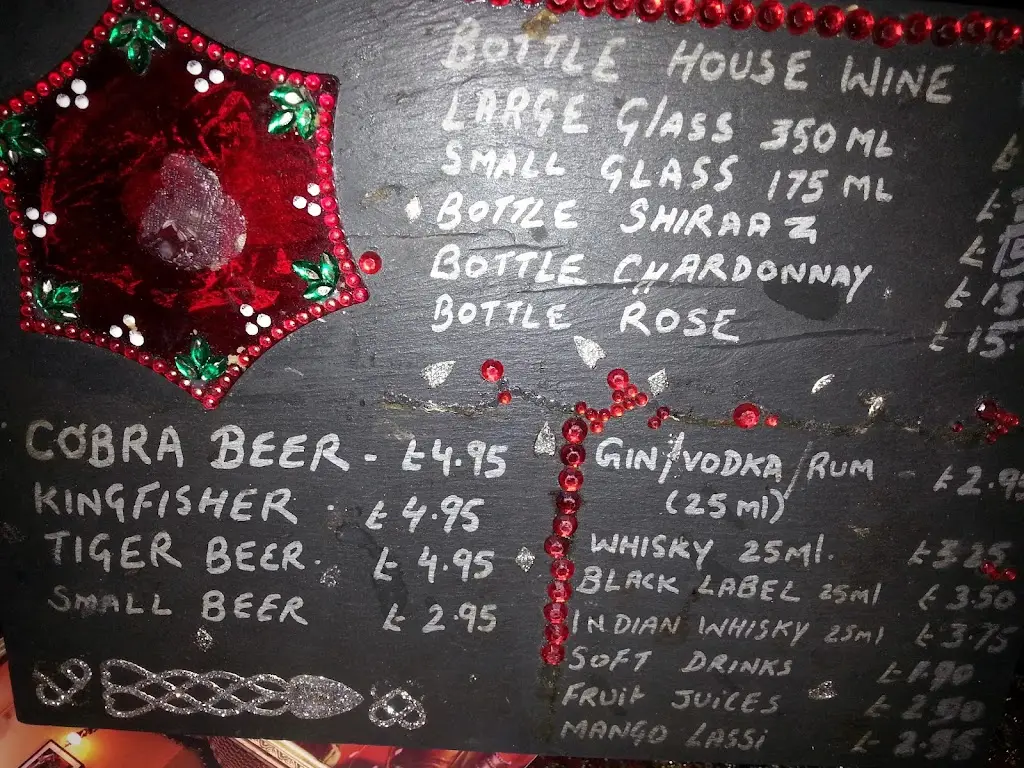 BOTTLE HOUSE WINE
LARGE GLASS 350 ML £
SMALL GLASS 175 ML £
BOTTLE SHIRAAZ £ 15
BOTTLE CHARDONNAY £ 15
BOTTLE ROSE £ 15.
COBRA BEER - £4.95
KINGFISHER . £ 4.95
TIGER BEER. £ 4.95
SMALL BEER £ 2.95
GIN/VODKA/RUM - £2.95
(25 ml)
WHISKY 25ml. £3.25
BLACK LABEL 25ml £3.50
INDIAN WHISKY 25ml £3.75
SOFT DRINKS £1.90
FRUIT JUICES £ 2.50
MANGO LASSI £ 2.95